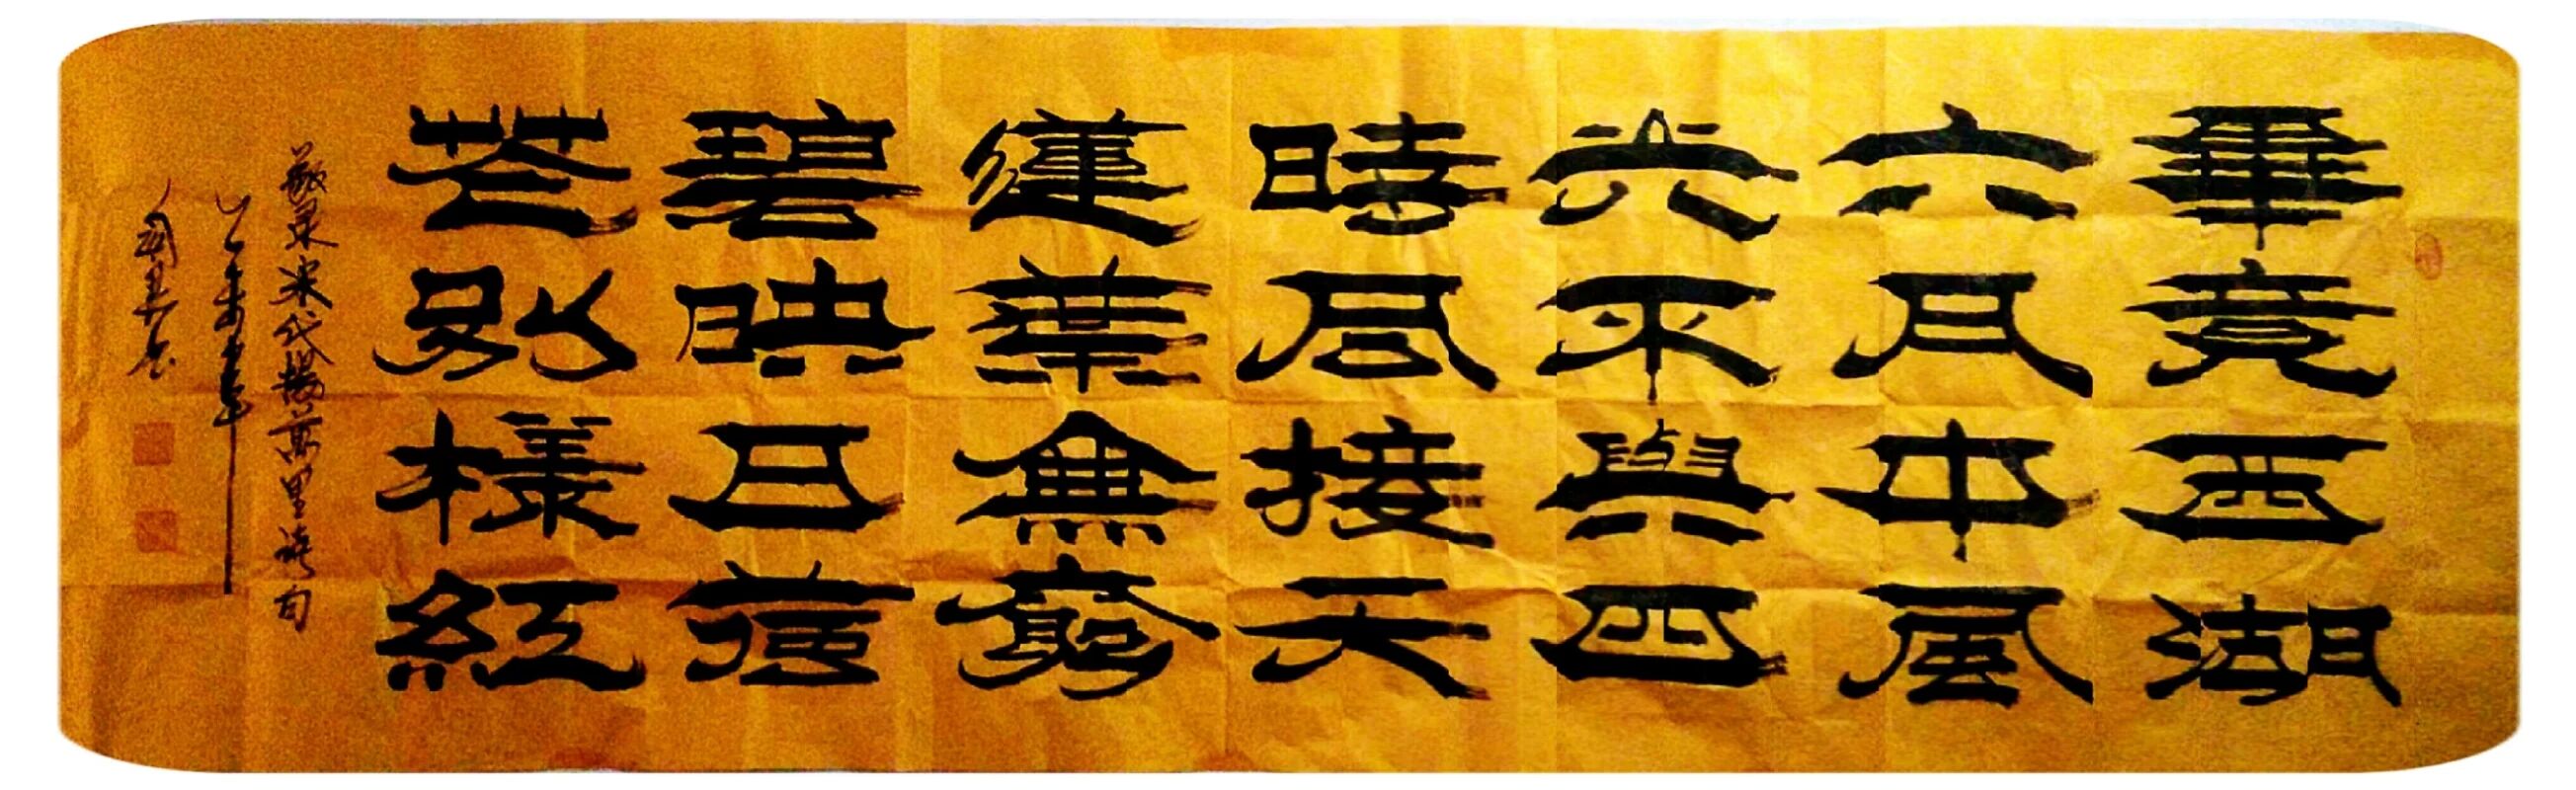 畢竟西湖
六月中風
光不與四
時同接天
蓮葉無窮
碧映日荷
花別樣紅
敬录宋代楊萬里詩句
乙未